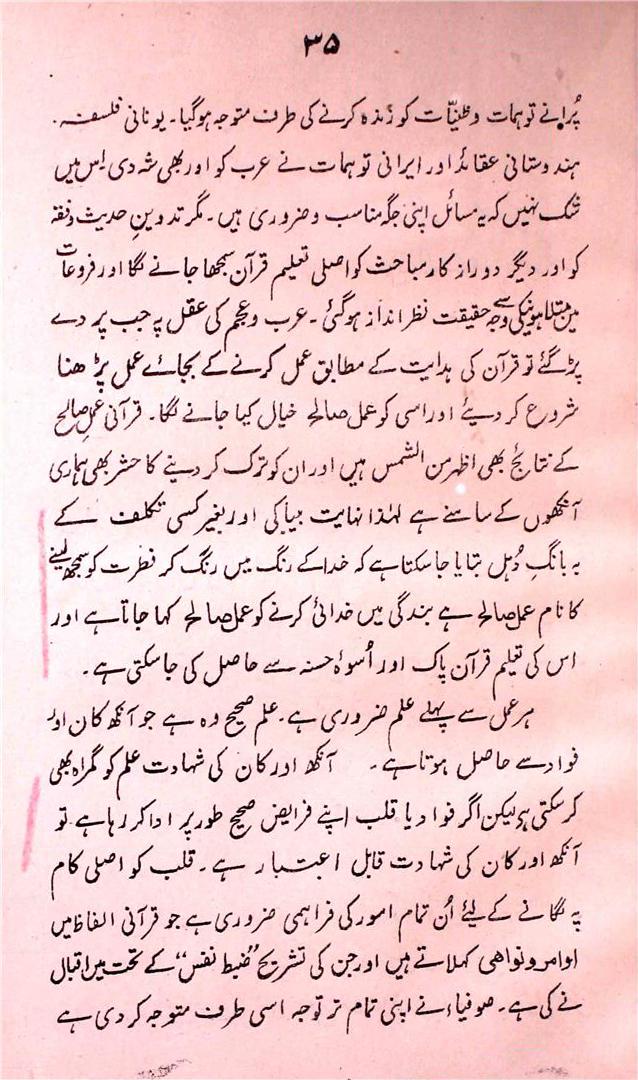 ۳۵
پُرانے توہمات و ظنیّات کو زندہ کرنے کی طرف متوجہ ہوگیا۔ یونانی فلسفہ۔
ہندوستانی عقائد اور ایرانی توہمات نے عرب کو اور بھی شہ دی اِس میں
شک نہیں کہ یہ مسائل اپنی جگہ مناسب و ضروری ہیں۔ مگر تدوینِ حدیث و فقہ
کو اور دیگر دور از کار مباحث کو اصلی تعلیم قرآن سمجھا جانے لگا اور فروعات
میں مبتلا ہونیکی وجہ سے حقیقت نظر انداز ہوگئی۔ عرب و عجم کی عقل پہ جب پردے
پڑ گئے تو قرآن کی ہدایت کے مطابق عمل کرنے کے بجائے عمل پڑھنا
شروع کر دیئے اور اسی کو عمل صالح خیال کیا جانے لگا۔ قرآنی عمل صالح
کے نتائج بھی اظہر من الشمس ہیں اور ان کو ترک کر دینے کا حشر بھی ہماری
آنکھوں کے سامنے ہے لہٰذا نہایت بیباکی اور بغیر کسی تکلف کے
بہ بانگِ دُہل بتایا جا سکتا ہے کہ خدا کے رنگ میں رنگ کر فطرت کو سمجھ لینے
کا نام عمل صالح ہے بندگی میں خدائی کرنے کو عمل صالح کہا جاتا ہے اور
اس کی تعلیم قرآن پاک اور اُسوۂ حسنہ سے حاصل کی جا سکتی ہے۔
ہر عمل سے پہلے علم ضروری ہے۔ علم صحیح وہ ہے جو آنکھ کان اور
فواد سے حاصل ہوتا ہے۔ آنکھ اور کان کی شہادت علم کو گمراہ بھی
کر سکتی ہے لیکن اگر فواد یا قلب اپنے فرایض صحیح طور پر ادا کر رہا ہے تو
آنکھ اور کان کی شہادت قابل اعتبار ہے۔ قلب کو اصلی کام
پہ لگانے کے لیئے اُن تمام امور کی فراہمی ضروری ہے جو قرآنی الفاظ میں
اوامر و نواھی کہلاتے ہیں اور جن کی تشریح ”ضبط نفس“ کے تحت میں اقبال
نے کی ہے۔ صوفیاء نے اپنی تمام تر توجہ اسی طرف متوجہ کر دی ہے